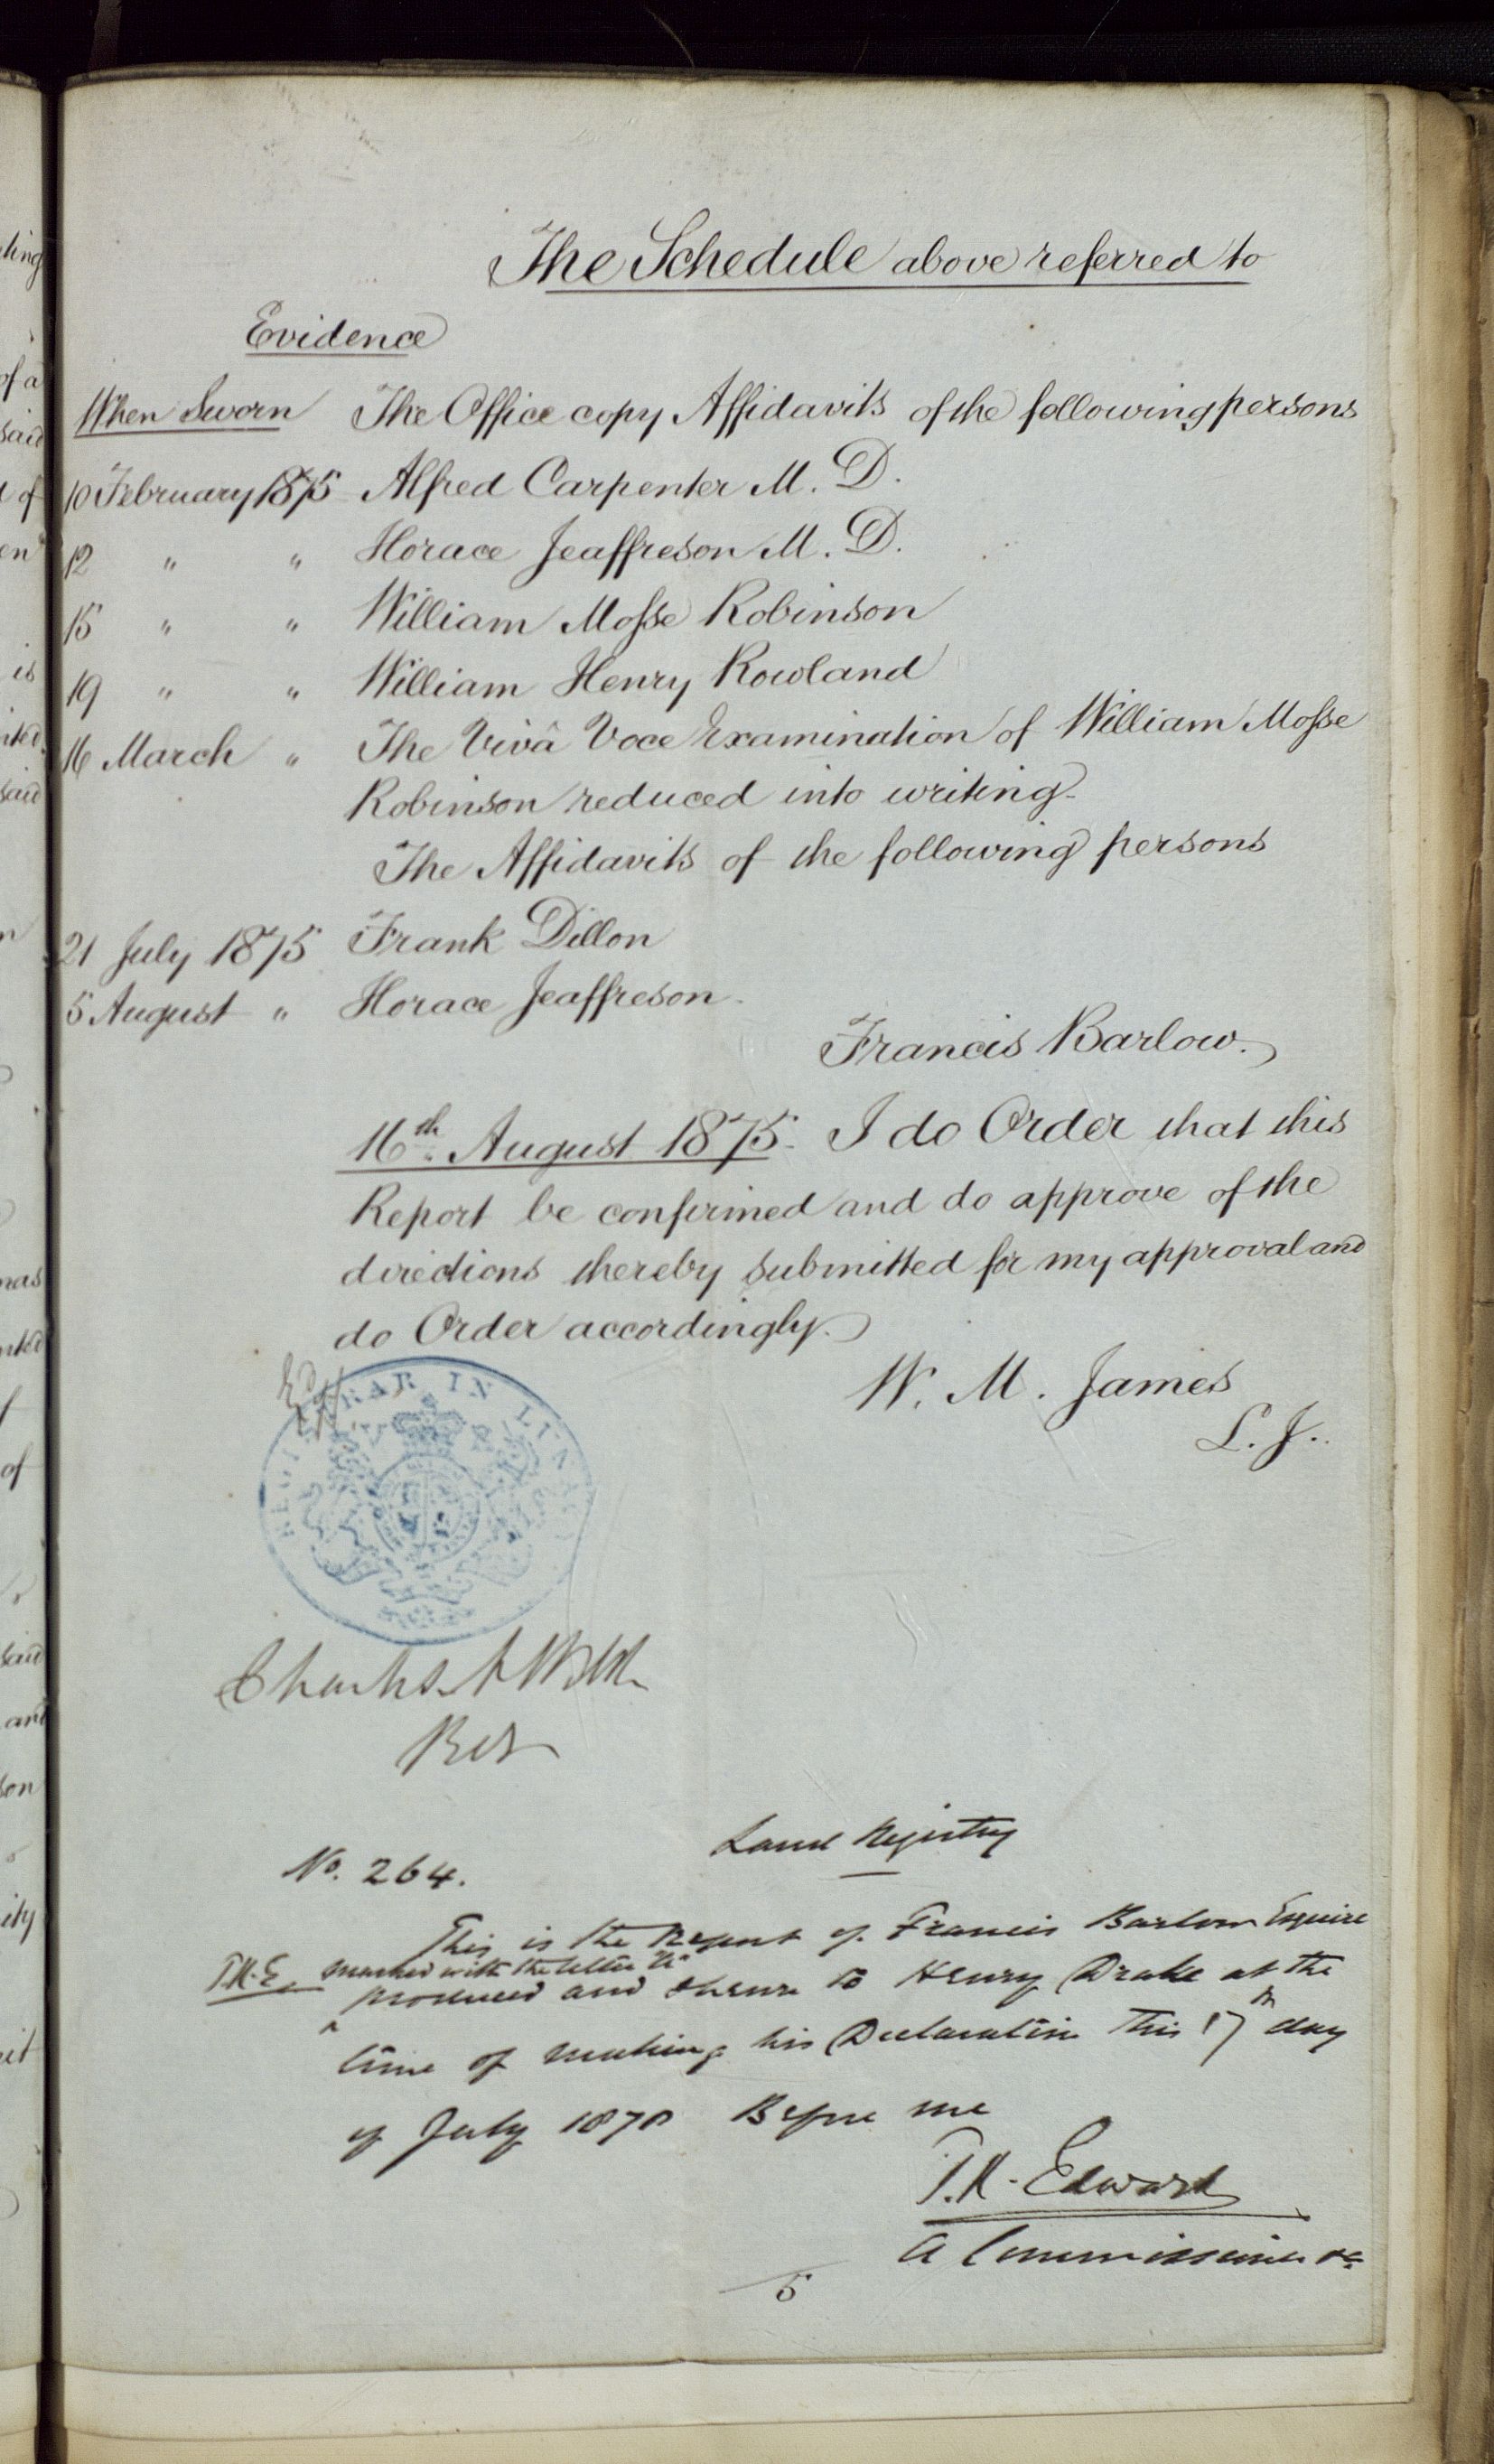 The Schedule above referred to
Evidence
When Sworn The Office copy Affidavits of the following persons
10 February 1875 Alfred Carpenter M. D.
12 " " Horace Jeaffreson M. D.
15 " " William Mosse Robinson
19 " " William Henry Rowland
16 March " The Vivâ Voce Examination of William Mosse
Robinson reduced into writing.
The Affidavits of the following persons
21 July 1875 Frank Dillon
5 August " Horace Jeaffreson
Francis Barlow.
16th August 1875. I do Order that this
Report be confirmed and do approve of the
directions thereby submitted for my approval and
do Order accordingly.
W. M. James
L. J.
REGISTRAR IN LUNACY
Charles
Land Registry
No. 264.
This is the Report of Francis Barlow Esquire
marked with the letter
produced and shewn to Henry Drake at the
time of making his Declaration this 17th day
of July 1878 Before me
Edwards
A Commissioner &c
5